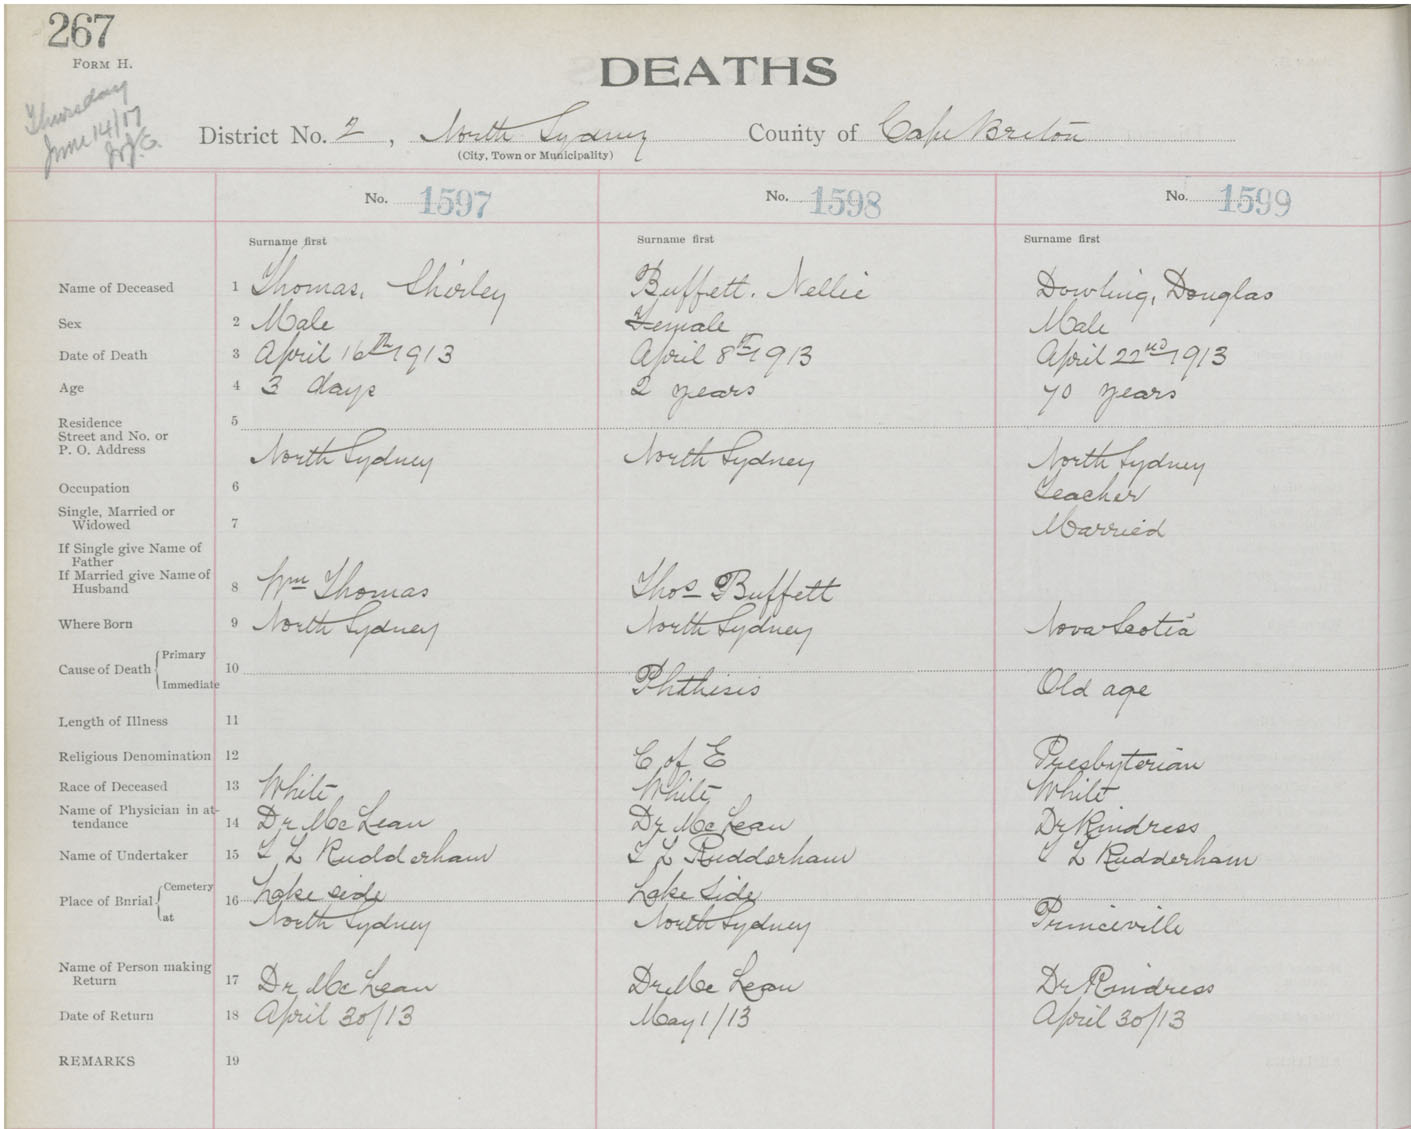 267
FORM H.
Thursday
June 14/17
DEATHS
District No. 2, North Sydney County of Cape Breton
(City, Town or Municipality)
No. 1597 No. 1598 No. 1599
Surname first Surname first Surname first
Name of Deceased 1 Thomas, Shirley Buffett. Nellie Dowling, Douglas
Sex 2 Male Female Male
Date of Death 3 April 16th 1913 April 8th 1913 April 22nd 1913
Age 4 3 days 2 years 70 years
Residence 5
Street and No. or
P. O. Address North Sydney North Sydney North Sydney
Occupation 6 Teacher
Single, Married or
Widowed 7 Married
If Single give Name of
Father
If Married give Name of
Husband 8 Wm Thomas Thos Buffett
Where Born 9 North Sydney North Sydney Nova Scotia
Primary
Cause of Death 10
Immediate Phthisis Old age
Length of Illness 11
Religious Denomination 12 C of E Presbyterian
Race of Deceased 13 White White White
Name of Physician in at-
tendance 14 Dr McLean Dr McLean Dr Rindress
Name of Undertaker 15 T L Rudderham T L Rudderham T L Rudderham
Cemetery Lake side Lake Side
Place of Burial 16
at North Sydney North Sydney Princeville
Name of Person making
Return 17 Dr McLean Dr McLean Dr Rindress
Date of Return 18 April 30/13 May 1/13 April 30/13
REMARKS 19